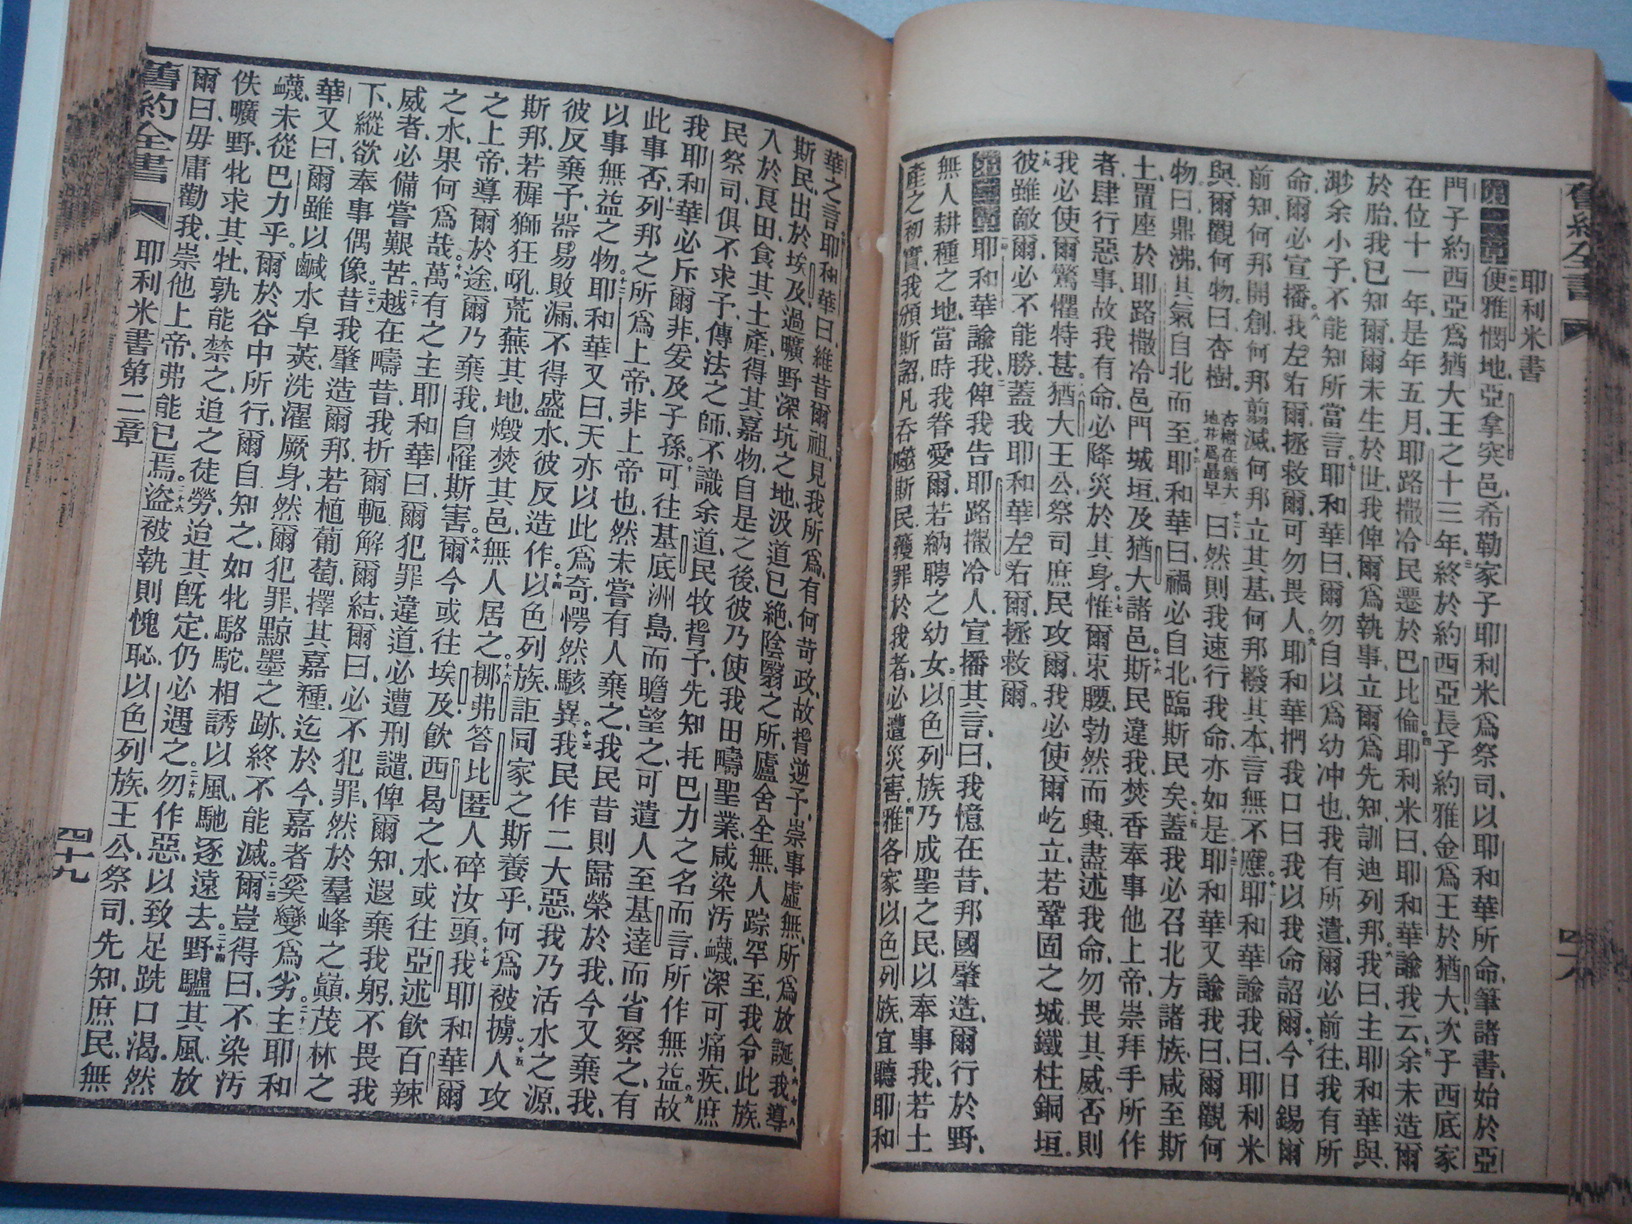 舊約全書
四十八
耶利米書
第一章便雅憫地、亞拿突邑、希勒家子耶利米爲祭司、以耶和華所命、筆諸書、始於亞
門子約西亞爲猶大王之十三年、終於約西亞長子約雅金爲王於猶大、次子西底家
在位十一年、是年五月、耶路撒冷民遷於巴比倫、耶利米曰、耶和華諭我云、余未造爾
於胎、我已知爾、爾未生於世、我俾爾爲執事、立爾爲先知、訓迪列邦、我曰、主耶和華與、
渺余小子、不能知所當言、耶和華曰、爾勿自以爲幼冲也、我有所遣、爾必前往、我有所
命、爾必宣播、我左右爾、拯救爾、可勿畏人、耶和華捫我口曰、我以我命詔爾、今日錫爾
前知、何邦開創、何邦翦滅、何邦立其基、何邦撥其本、言無不應、耶和華諭我曰、耶利米
與、爾觀何物、曰杏樹。杏樹在猶大地並爲最早曰、然則我速行我命、亦如是、耶和華又諭我曰、爾觀何
物、曰鼎沸、其氣自北而至、耶和華曰、禍必自北臨斯民矣、蓋我必召北方諸族、咸至斯
土、置座於耶路撒冷邑門城垣、及猶大諸邑、斯民違我、焚香奉事他上帝、崇拜手所作
者、肆行惡事、故我有命、必降災於其身、惟爾束腰、勃然而興、盡述我命、勿畏其威、否則
我必使爾驚懼特甚、猶大王公祭司庶民攻爾、我必使爾屹立、若鞏固之城、鐵柱銅垣。
彼雖敵爾、必不能勝、蓋我耶和華左右爾、拯救爾。
第二章耶和華諭我、俾我告耶路撒冷人、宣播其言、曰、我憶在昔、邦國肇造、爾行於野、
無人耕種之地、當時我眷愛爾、若納聘之幼女、以色列族乃成聖之民、以奉事我、若土
產之初實、我頒斯詔、凡吞噬斯民、獲罪於我者、必遭災害、雅各家以色列族、宜聽耶和
華之言、耶和華曰、維昔爾祖、見我所爲、有何苛政、故背逆予、崇事虛無、所爲放誕、我導
斯民、出於埃及、過曠野深坑之地、汲道已絕、陰翳之所、廬舍全無、人踪罕至、我命此族、
入於艮田、食其土產、得其嘉物、自是之後、彼乃使我田疇聖業、咸染汚衊、深可痛疾、庶
民祭司、俱不求予、傳法之師、不識余道、民牧背予、先知托巴力之名而言、所作無益、故
我耶和華必斥爾非、爰及子孫、可往基底洲島而瞻望之、可遣人至基達而省察之、有
此事否、列邦之所爲上帝、非上帝也、然未嘗有人棄之、我民昔則歸榮於我、今又棄我、
以事無益之物、耶和華又曰、天亦以此爲奇、愕然駭異、我民作二大惡、我乃活水之源、
彼反棄予、器易敗漏、不得盛水、彼反造作、以色列族、詎同家之斯養乎、何爲被擄、人攻
斯邦、若穉獅狂吼、荒蕪其地、燬焚其邑、無人居之、挪弗答比匿人碎汝頭、我耶和華爾
之上帝、導爾於途、爾乃棄我、自罹斯害、爾今或往埃及、飲西曷之水、或往亞述、飲百辣
之水、果何爲哉、萬有之主耶和華曰、爾犯罪違道、必遭刑譴、俾爾知遐棄我躬、不畏我
威者、必備嘗艱苦、越在疇昔、我折爾軛、解爾結、爾曰、必不犯罪、然於羣峰之巔、茂林之
下、縱欲奉事偶像、昔我肇造爾邦、若植葡萄、擇其嘉種、迄於今、嘉者奚變爲劣、主耶和
華又曰、爾雖以鹹水皁莢、洗濯厥身、然爾犯罪、黥墨之跡、終不能滅、爾豈得曰、不染汚
衊、未從巴力乎、爾於谷中所行、爾自知之、如牝駱駝、相誘以風、馳逐遠去、野驢其風、放
佚曠野、牝求其牡、孰能禁之、追之徒勞、迨其既定、仍必遇之、勿作惡、以致足跣口渴、然
爾曰、毋庸勸我、我崇他上帝、弗能已焉、盜被執則愧恥、以色列族、王公祭司、先知庶民、無
舊約全書
耶利米書第二章
四十九